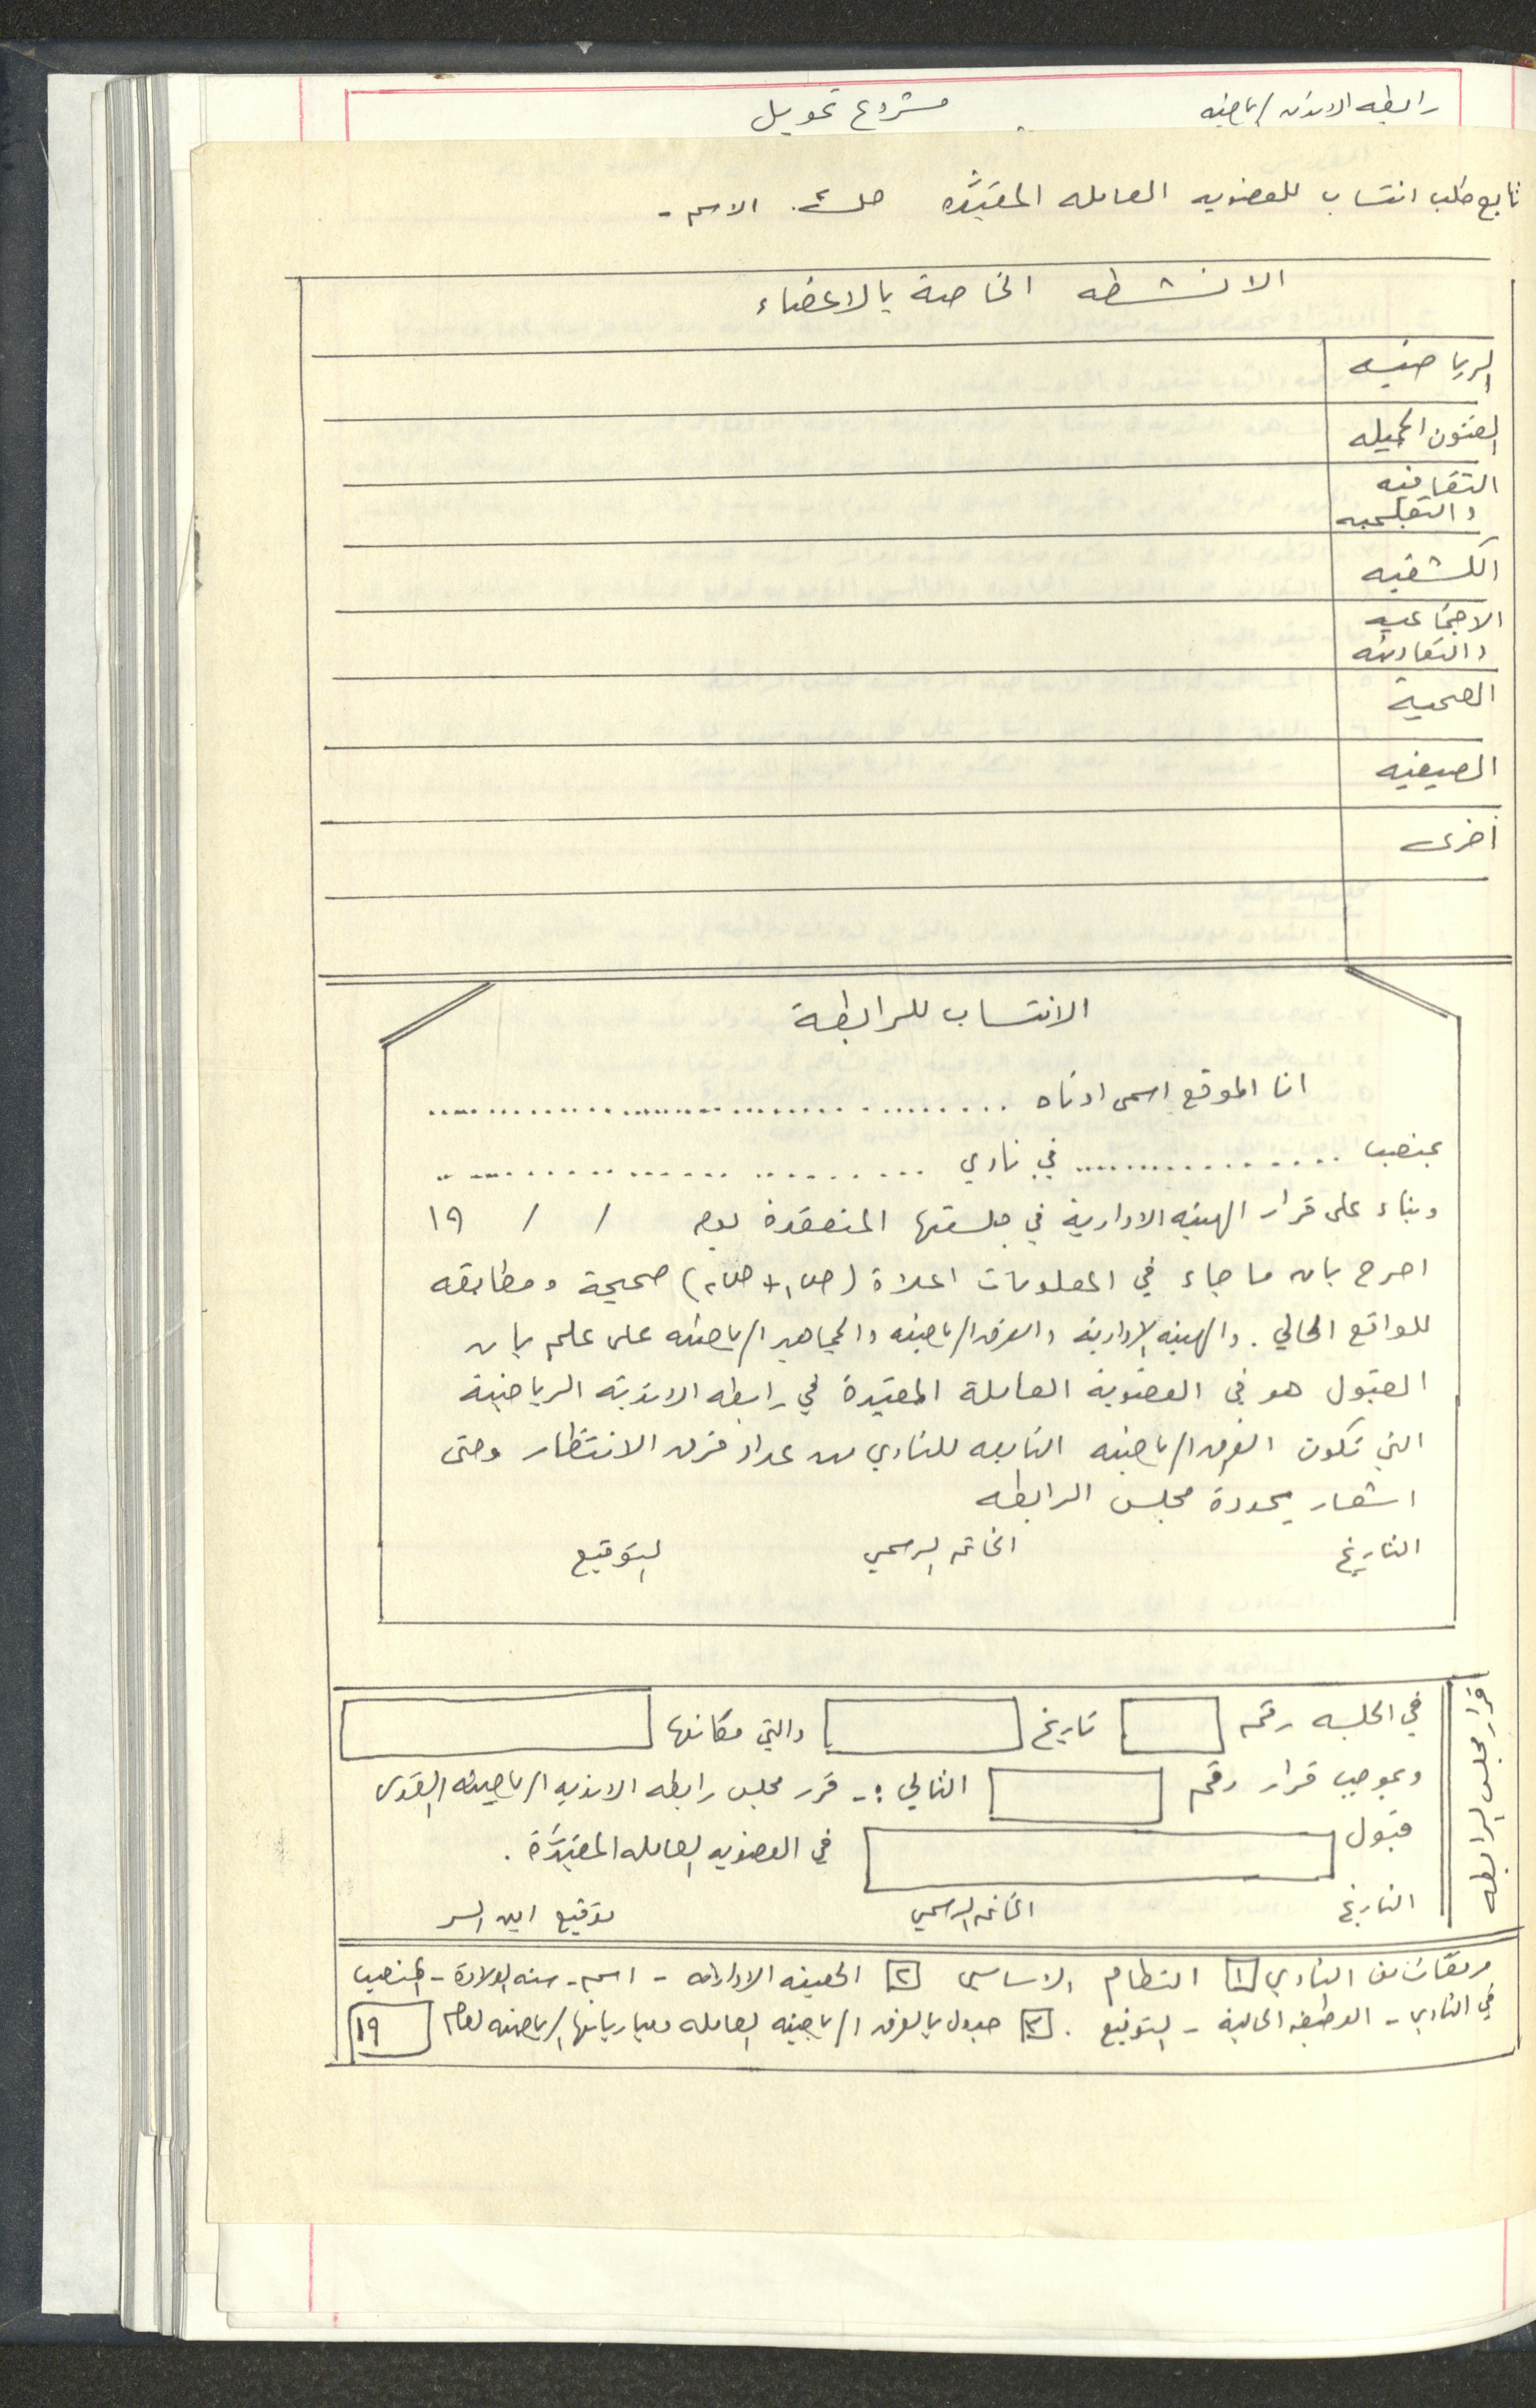 رابطه الانديه الرياضيه مشروع تحويل
تابع طلب انتساب للعضويه العامله المقيَّده الاسم -
الانشطه الخاصة بالاعضاء
الرياضيه
الفنون الجميله
الثقافيه
والتعليميه
الكشفيه
الاجتماعيه
والتعاونيه
الصحية
الصيفيه
أخرى
الانتساب للرابطة
انا الموقع اسمي ادناه ..............................
بمنصب .................. في نادي ..............................
وبناء على قرار الهيئه الادارية في جلستها المنعقدة يوم / / ١٩
اصرح بان ما جاء في المعلومات اعلاة (ص١ + ص٢) صحيحة ومطابقه
للواقع الحالي . والهيئه الإدارية والفرق الرياضيه والجماهير الرياضيه على علم بان
القبول هو في العضوية العاملة المقيدة في رابطه الاندية الرياضية
التي تكون الفرق الرياضيه التابعه للنادي من عداد فرق الانتظار وحتى
اشعار يحددة مجلس الرابطه
التاريخ الخاتم الرسمي التوقيع
قرار مجلس الرابطه
في الجلسه رقم تاريخ والتي مكانها
وبموجب قرار رقم التالي :- قرر مجلس رابطه الانديه الرياضيه القدس
قبول في العضويه العامله المقيَّدة .
التاريخ الخاتم الرسمي توقيع امين السر
مرفقات من النادي ١ النظام الاساسي ٢ الهيئه الاداريه - اسم - سنه الولادة - المنصب
في النادي - الوظيفه الحالية - التوقيع . ٣ جدول بالفرق الرياضيه العامله ومبارياتها الرياضيه لعام ١٩